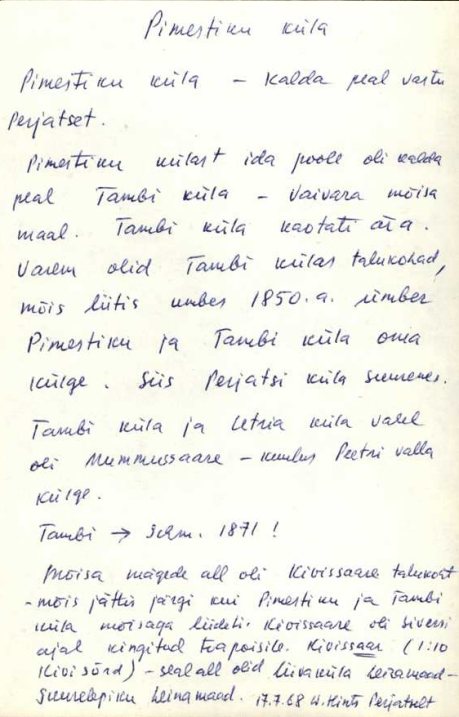 Pimestiku küla
Pimestiku küla – kalda peal vastu
Perjatset.
Pimestiku külast ida poole oli kalda
peal Tambi küla – Vaivara mõisa
maal. Tambi küla kaotati ära.
Varem olid Tambi külas talukohad,
mõis liitis umbes 1850.a. ümber
Pimestiku ja Tambi küla oma
külge. Siis Perjatsi küla suurenes.
Tambi küla ja Utria küla vahel
oli Mummussaare – kuulus Peetri valla
külge.
Tambi → Schm. 1871!
Mõisa mägede all oli Kivissaare talukoht
– mõis jättis järgi kui Pimestiku ja Tambi
küla mõisaga liideti. Kivissaare oli siversi
ajal kingitud toapoisile. Kivissaar (1:10
Kivisõrd) – seal all olid liivaküla heinamaad –
Suurelepiku heinamaad. 17.7.68 Perjatselt